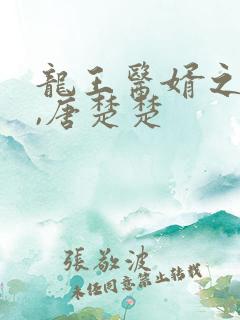 龍王醫婿之
,唐楚楚
張敬波
未任同意禁止转載